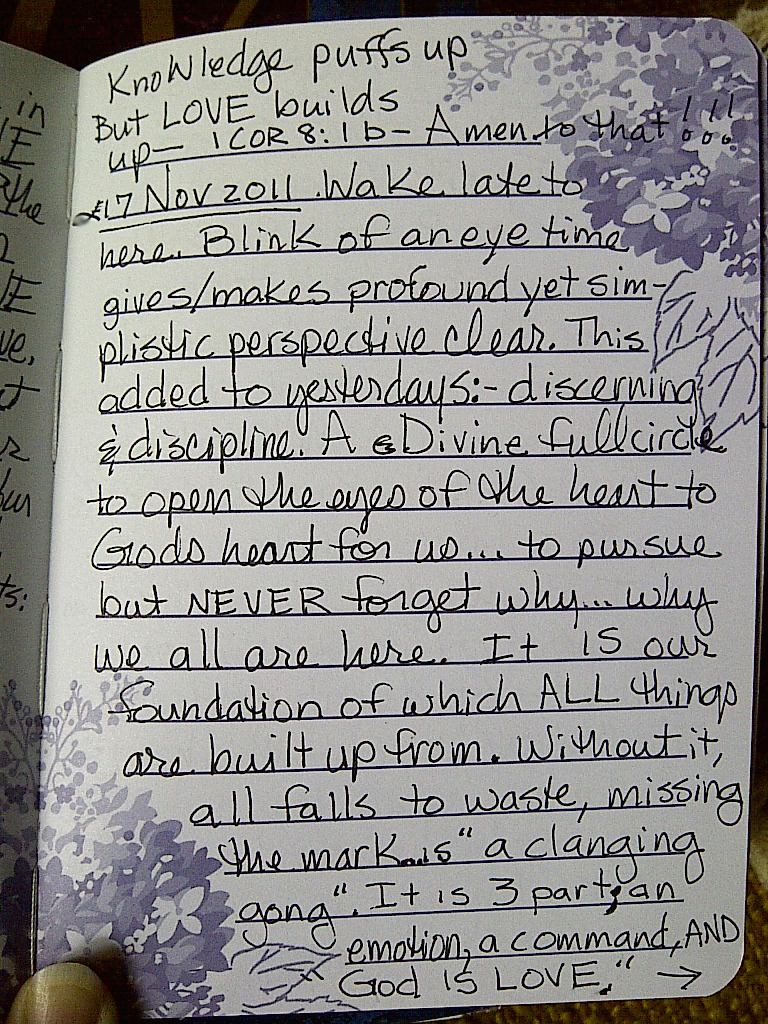 in
E
the
E
ve,
t
r
ts:
KnoWledge puffs up
But LOVE builds
up— 1 COR 8:1b— Amen to that!!!
17 Nov 2011. Wake late to
here. Blink of an eye time
gives/makes profound yet sim-
plistic perspective clear. This
added to yesterdays:- discerning
& discipline. A Divine full circle
to open the eyes of the heart to
Gods heart for us... to pursue
but NEVER forget why... why
we all are here. It IS our
foundation of which ALL things
are built up from. Without it,
all falls to waste, missing
the mark...is "a clanging
gong". It is 3 part; an
emotion, a command, AND
God IS LOVE." →